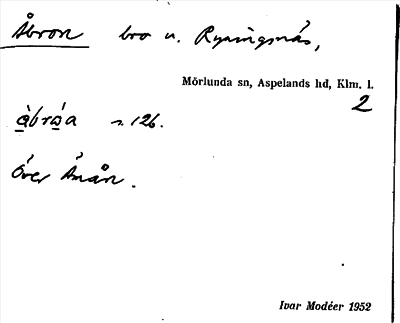 Åbron bro v. Ryningsnäs,
Mörlunda sn, Aspelands hd, Klm. l.
2
åbrọ́a s. 126.
över Ånån.
Ivar Modéer 1952